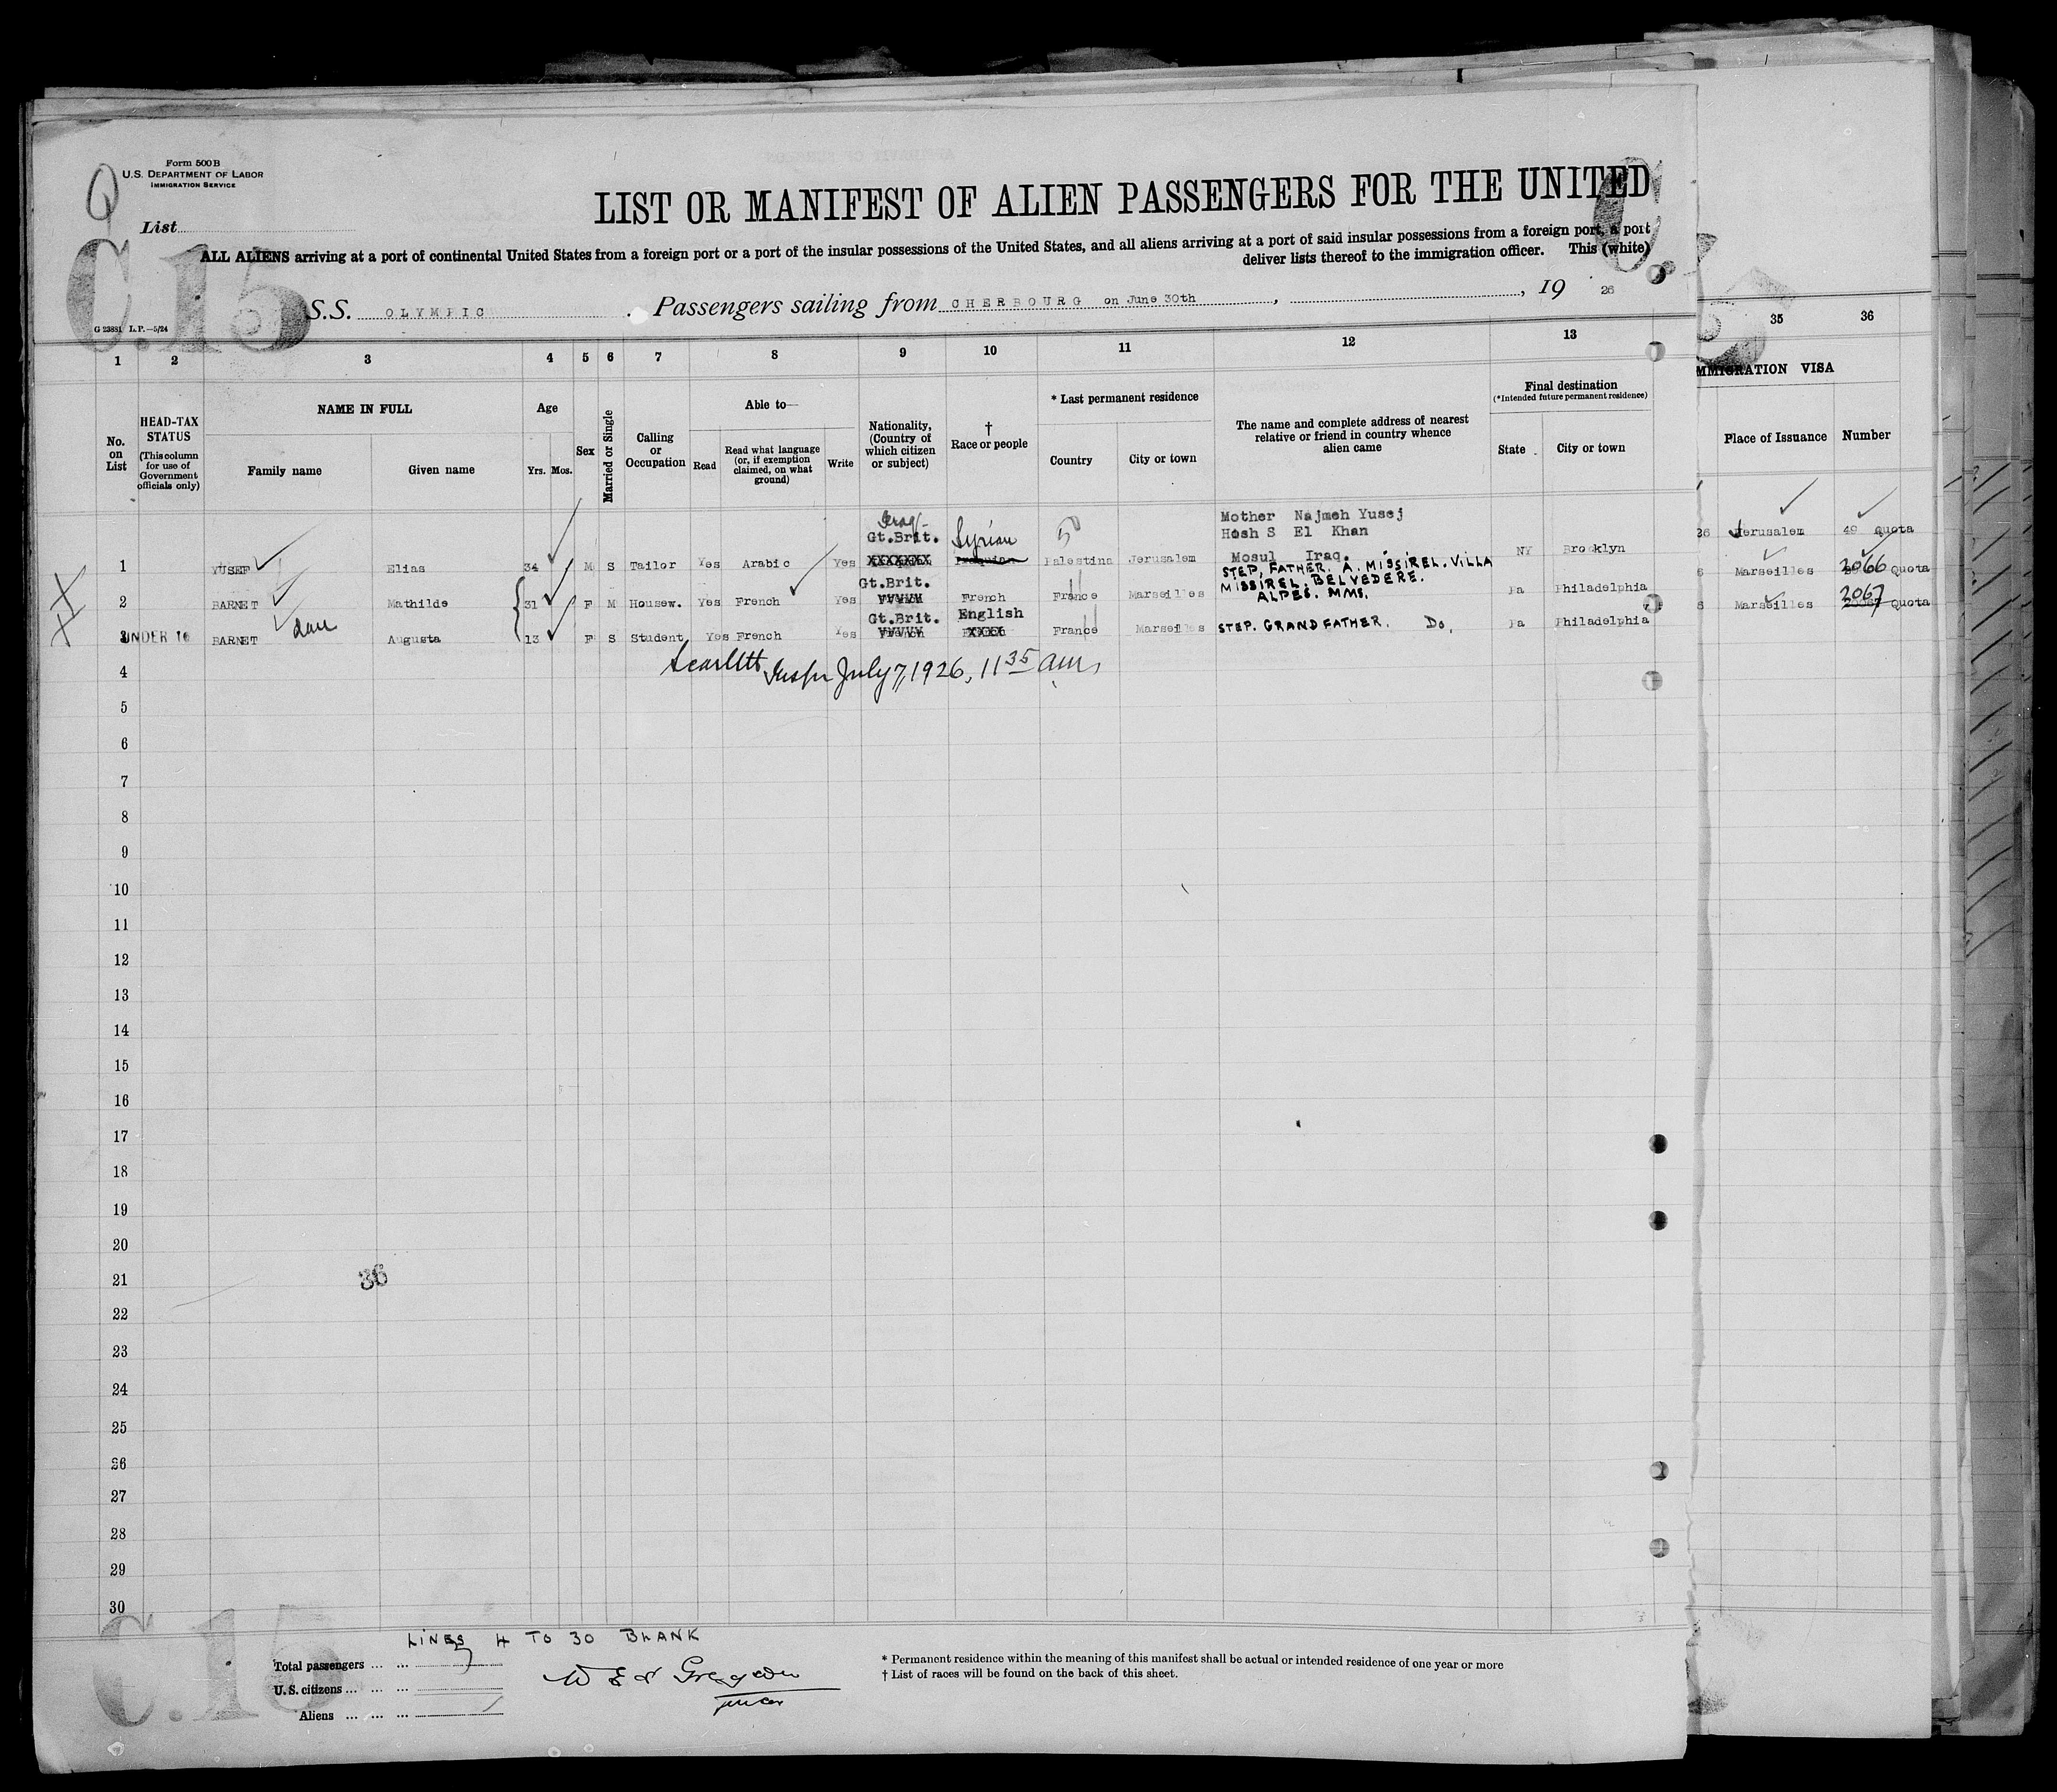 Form 500 B
U.S. DEPARTMENT OF LABOR
IMMIGRATION SERVICE
Q
List
C.15
LIST OR MANIFEST OF ALIEN PASSENGERS FOR THE UNITED
ALL ALIENS arriving at a port of continental United States from a foreign port or a port of the insular possessions of the United States, and all aliens arriving at a port of said insular possessions from a foreign port, a port
deliver lists thereof to the immigration officer. This (white)
S.S. OLYMPIC . Passengers sailing from CHERBOURG on June 30th , , 19 26
G 23881 L.P.—5/24
1 2 3 4 5 6 7 8 9 10 11 12 13 35 36
No. on List
HEAD-TAX STATUS (This column for use of Government officials only)
NAME IN FULL
Family name Given name
Age
Yrs. Mos.
Sex
Married or Single
Calling or Occupation
Able to—
Read Read what language (or, if exemption claimed, on what ground) Write
Nationality, (Country of which citizen or subject)
† Race or people
* Last permanent residence
Country City or town
The name and complete address of nearest relative or friend in country whence alien came
Final destination
(*Intended future permanent residence)
State City or town
MMIGRATION VISA
Place of Issuance Number
Iraq Mother Najmeh Yusej
Gt.Brit. Syrian Hosh S El Khan
1 YUSEF Elias 34 M S Tailor Yes Arabic Yes XXXXXXX Palestina Jerusalem Mosul Iraq. NY Brooklyn 26 Jerusalem 49 Quota
Gt.Brit. STEP, FATHER. A. MISSIREL. VILLA
2 BARNET Mathilde 31 F M Housew. Yes French Yes French France Marseilles MISSIREL. BELVEDERE. ALPES. MMS. Pa Philadelphia 6 Marseilles 2066 Quota
Gt.Brit. English
3 UNDER 16 BARNET dau Augusta 13 F S Student Yes French Yes XXXX France Marseilles STEP. GRANDFATHER. Do, Pa Philadelphia 6 Marseilles 2067 Quota
4 July 7, 1926, 11 35 am,
5
6
7
8
9
10
11
12
13
14
15
16
17
18
19
20
21 36
22
23
24
25
26
27
28
29
30
LINES 4 TO 30 BLANK
C.15
Total passengers ... ...
U.S. citizens ... ... ...
Aliens ... ... ...
* Permanent residence within the meaning of this manifest shall be actual or intended residence of one year or more
† List of races will be found on the back of this sheet.